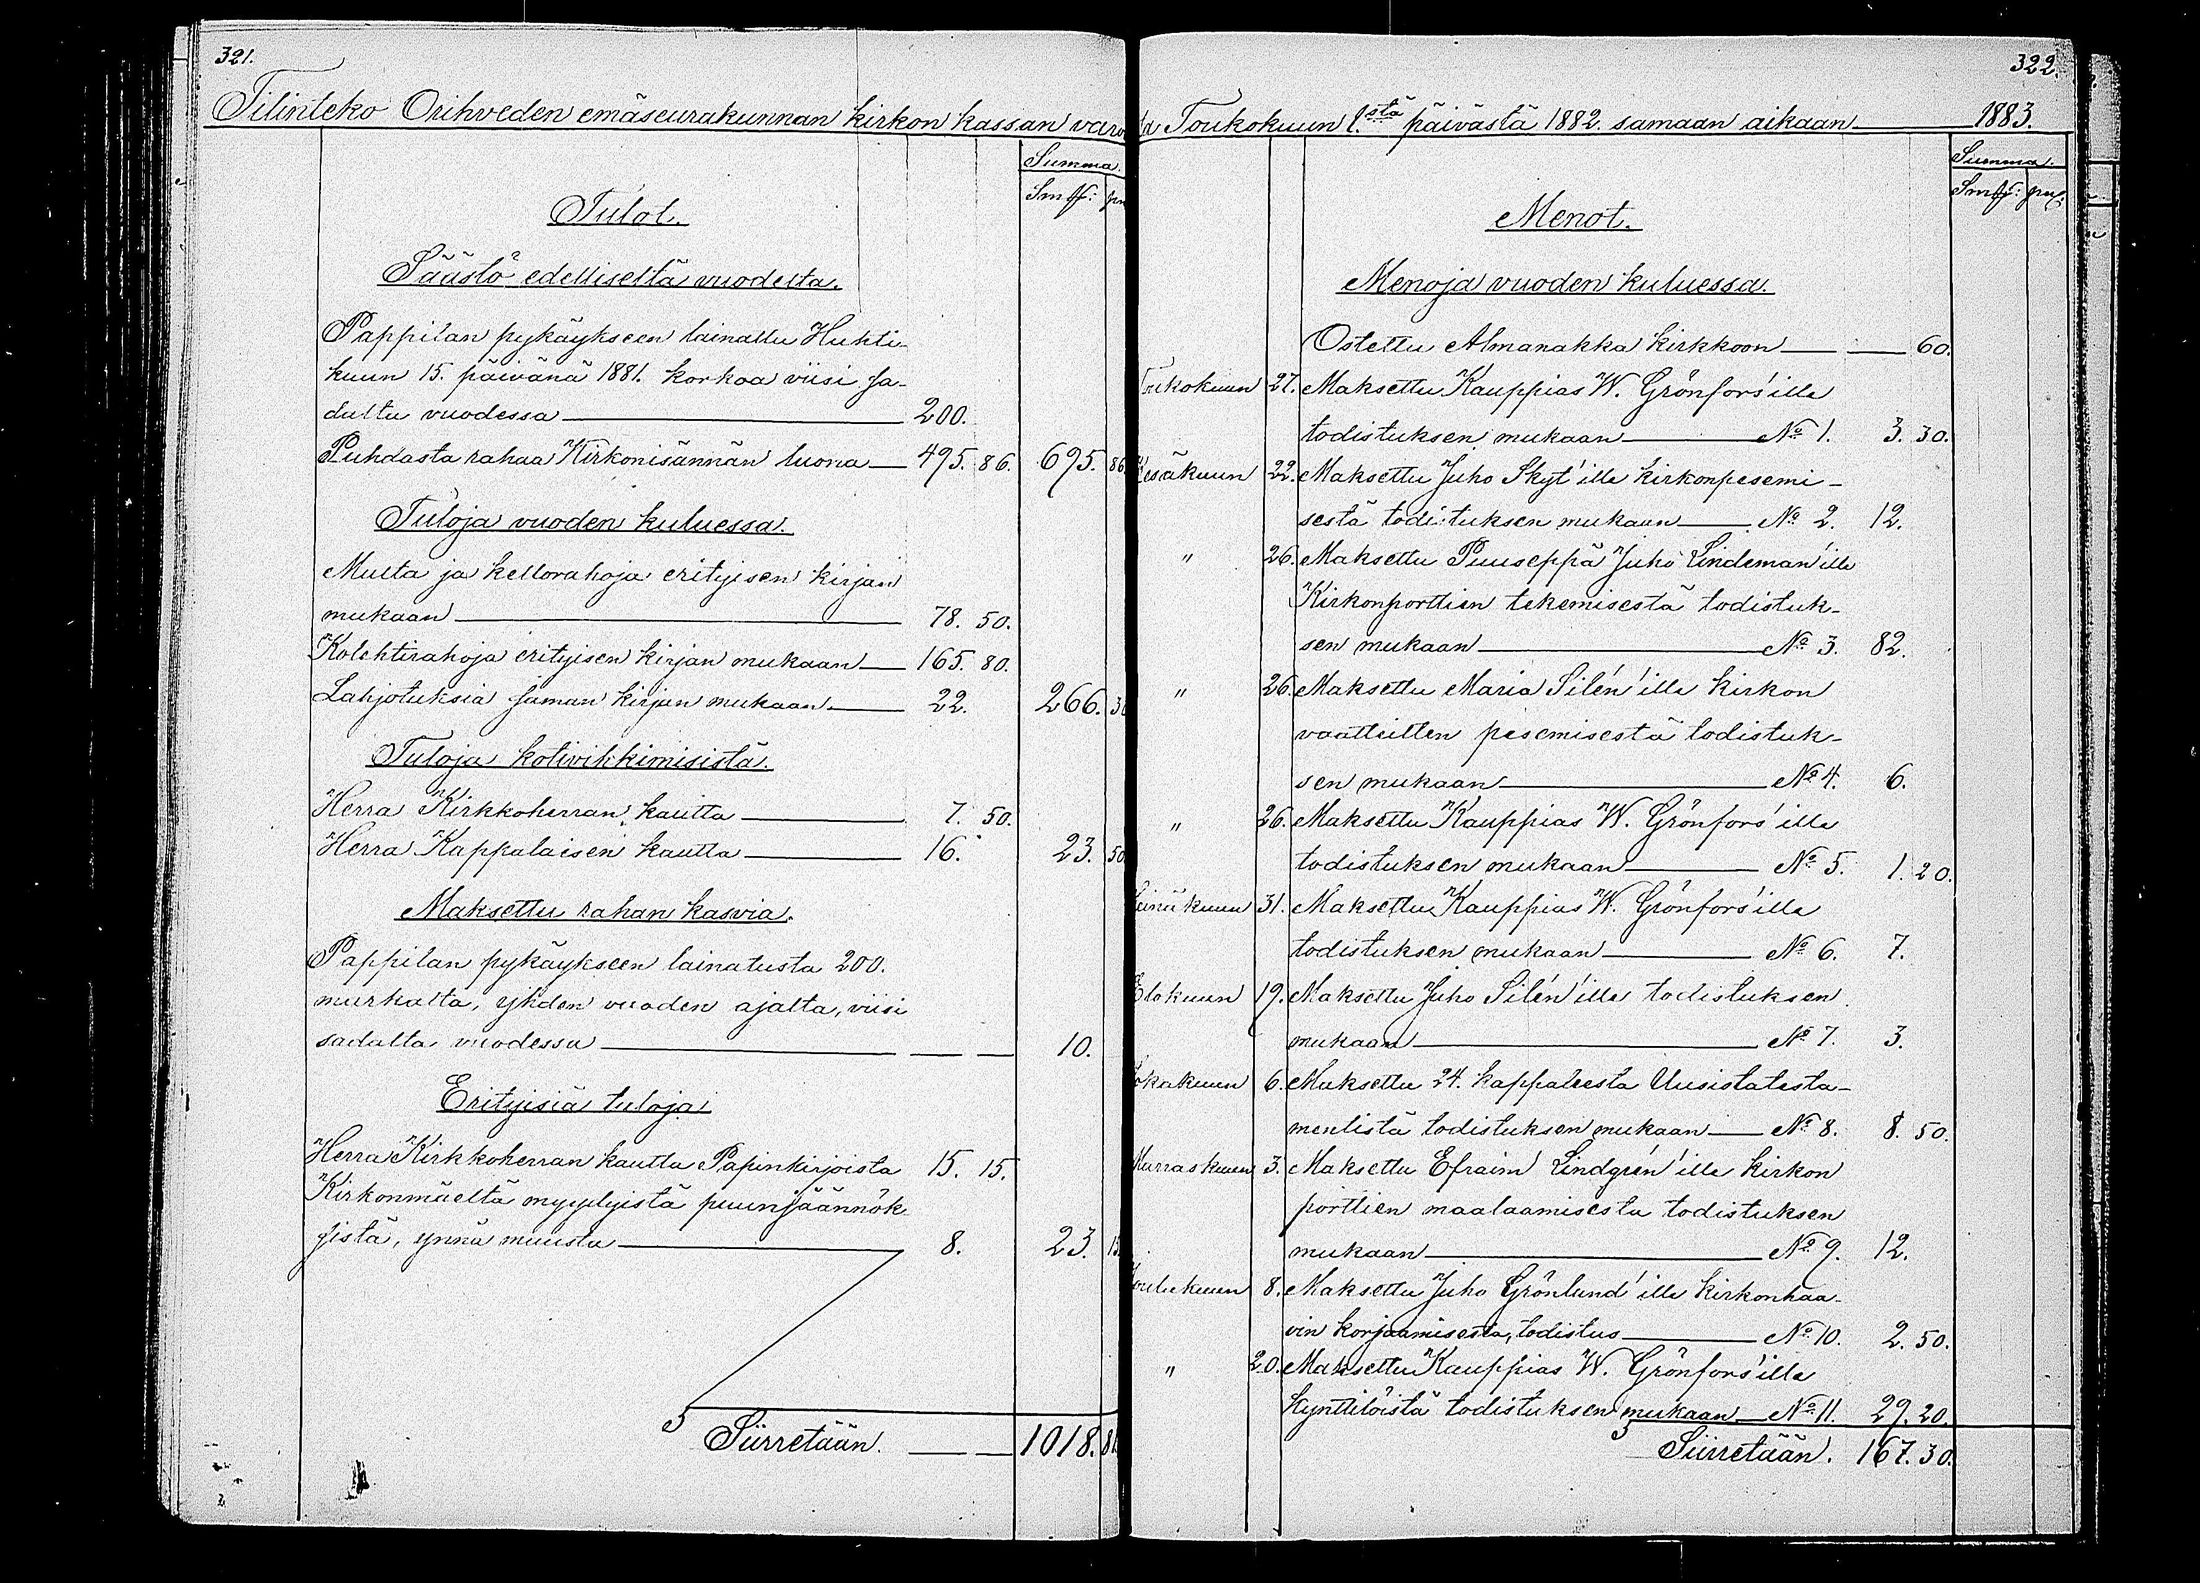 321.
Tilinteko Orihveden emäseurakunnan kirkon kassan varo
Summa.
Smk: pn
Tulot.
Säästö edelliseltä vuodelta.
Pappilan pykäykseen lainattu Huhti-
kuun 15. päivänä 1881. korkoa viisi sa-
dultu vuodessa 200.
Puhdasta rahaa Kirkonisännän luona 495. 86. 695. 86
Tuloja vuoden kuluessa.
Multa ja kellorahoja erityisen kirjan
mukaan 78. 50.
Kolehtirahoja erityisen kirjan mukaan 165. 80.
Lahjotuksia saman kirjan mukaan 22. 266. 30
Tuloja kotivihkimisistä.
Herra Kirkkoherran kautta 7. 50.
Herra Kappalaisen kautta 16. 23. 50
Maksettu rahan kasvia.
Pappilan pykäykseen lainatusta 200.
markalta, yhden vuoden ajalta, viisi
sadalta vuodessa 10.
Erityisiä tuloja
Herra Kirkkoherran kautta Papinkirjoista 15. 15.
Kirkonmäeltä myydyistä puunjäännök
sistä, ynnä muusta 8. 23. 15
Siirretään. 1018. 81
322.
ta Toukokuun 1.stä päivästä 1882 samaan aikaan 1883.
Summa.
Smk: pn:
Menot.
Menoja vuoden kuluessa.
Ostettu Almanakka kirkkoon 60.
Toukokuun 27. Maksettu Kauppias W. Grönfors'ille
todistuksen mukaan No 1. 3. 30.
Kesäkuun 22. Maksettu Juho Skyt'ille kirkonpesemi-
sestä todistuksen mukaan No 2. 12.
" 26. Maksettu Puuseppä Juho Lindeman'ille
Kirkonporttien tekemisestä todistuk-
sen mukaan No 3. 82.
" 26. Maksettu Maria Silén'ille kirkon
vaatteitten pesemisestä todistuk-
sen mukaan No 4. 6.
" 26. Maksettu Kauppias W. Grönfors'ille
todistuksen mukaan No 5. 1. 20.
Heinäkuun 31. Maksettu Kauppias W. Grönfors'ille
todistuksen mukaan No 6. 7.
Elokuun 19. Maksettu Juho Silén'ille todistuksen
mukaan No 7. 3.
Lokakuun 6. Maksettu 24. kappaleesta Uusistatesta-
mentistä todistuksen mukaan No 8. 8. 50.
Marraskuun 3. Maksettu Efraim Lindgrén'ille kirkon
porttien maalaamisesta todistuksen
mukaan No 9. 12.
Joulukuun 8. Maksettu Juho Grönlund'ille kirkonhaa-
vin korjaamisesta, todistus No 10. 2. 50.
" 20. Maksettu Kauppias W. Grönfors'ille
kynttilöistä todistuksen mukaan No 11. 29. 20.
Siirretään. 167. 30.